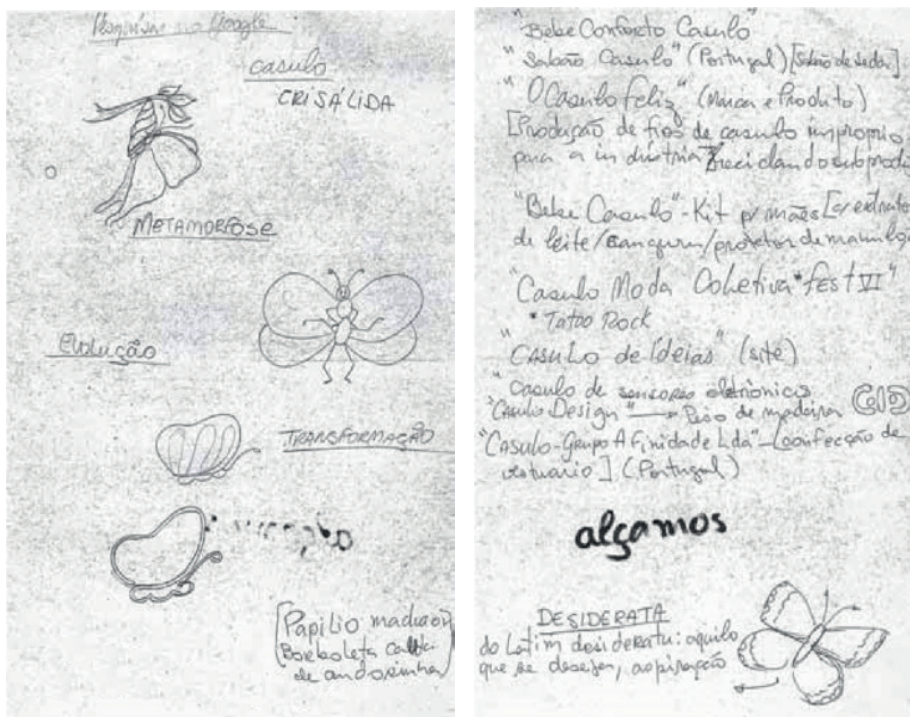 Pesquisa no Google
casulo
CRISÁLIDA
METAMORFOSE
Evolução
TRANSFORMAÇÃO
[Papilio
Borboleta
de andorinha]
"Bebe Conforto Casulo"
"Sabão Casulo" (Portugal) [Sabão de seda]
"O Casulo Feliz" (Marca e Produto)
[Produção de fios de casulo improprio
para a indústria reciclando subprodu
"Bebe Casulo" - Kit p/ mães [c/ extrator
de leite/canguru/protetor de mamilo
"Casulo Moda Coletiva * fest VI"
* Tatoo Rock
"CASULO de Ideias" (site)
"Casulo de sensores eletrônicos
"Casulo Design" → Piso de madeira
"CASULO-Grupo Afinidade Lda" - [confecção de
vestuario] (Portugal)
alçamos
DESIDERATA
do Latim desideratu: aquilo
que se deseja, aspiração